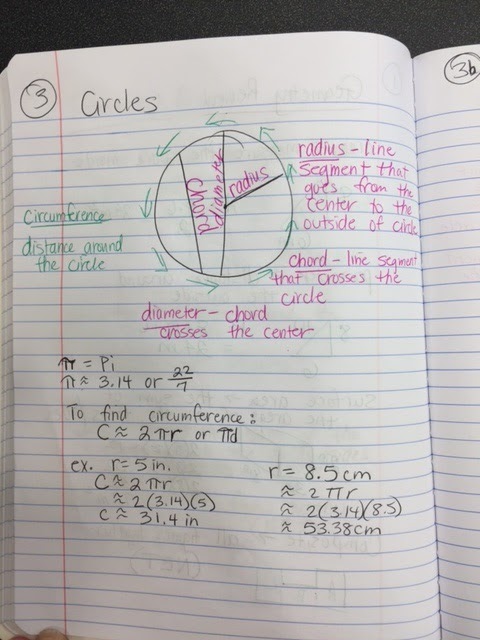 3
3b
Circles
radius - line
segment that
goes from the
center to the
outside of circle
chord
diameter
radius
Circumference
distance around
the circle
chord - line segment
that crosses the
circle
diameter - chord
crosses the center
π = Pi
π ≈ 3.14 or 22/7
To find circumference:
C ≈ 2πr or πd
ex. r = 5 in.
C ≈ 2πr
≈ 2(3.14)(5)
C ≈ 31.4 in
r = 8.5 cm
≈ 2πr
≈ 2(3.14)(8.5)
≈ 53.38cm